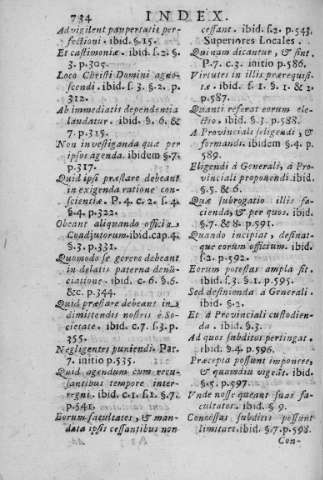 734 INDEX.
Advigilent paupertatis per-
fectioni. ibid. §. 15.
Et castimoniæ. ibid. s. 2. §.
3. p. 305.
Loco Christi Domini agno-
scendi. ibid. s. 3. §. 2. p.
312.
Ab immediatis dependentia
laudatur. ibid. §. 6. &
7. p. 315.
Non investiganda quæ per
ipsos agenda. ibidem §. 7.
p. 317.
Quid ipsi præstare debeant
in exigenda ratione con-
scientiæ. P. 4. c. 2. s. 4.
§. 4. p. 322.
Obeant aliquando officia
Coadjutorum. ibid. cap. 4.
§. 3. p. 332.
Quomodo se gerere debeant
in delatis paterna denũ-
ciatione. ibid. c. 6. §. 6.
&c. p. 344.
Quid præstare debeant in
dimittendis nostris è So-
cietate. ibid. c. 7. s. 3. p.
355.
Negligentes puniendi. Par.
7. initio p. 535.
Quid agendum cum recu-
santibus tempore inter-
regni. ibid. c. 1. s. 1. §. 7.
p. 541.
Eorum facultates, & man-
data ipsis cessantibus non
cessant. ibid. s. 2. p. 543.
Superiores Locales.
Qui nam dicantur, & sint
P. 7. c. 2. initio p. 586.
Virtutes in illis prærequisi-
tæ. ibid. s. 1. §. 1. & 2.
p. 587.
Quanti referat eorum ele-
ctio. ibid. §. 3. p. 588.
A Provinciale seligendi, &
formandi. ibidem §. 4. p.
589.
Eligendi à Generali, à Pro-
vinciali proponendi. ibid.
§. 5. & 6.
Quæ subrogatio illis fa-
cienda, & per quos. ibid.
§. 7. & 8. p. 591.
Quando incipiat, desinat-
que eorum officium. ibid.
s. 2. p. 592.
Eorum potestas ampla sit.
ibid. s. 3. §. 1. p. 595.
Sed definienda à Generali.
ibid. §. 2.
Et à Provinciali custodien-
da. ibid. §. 3.
Ad quos subditos pertingat.
ibid. §. 4. p. 596.
Præcepta possunt imponere,
& quomodo vigeãt. ibid.
§. 5. p. 597.
Unde nosse queant suas fa-
cultates. ibid. §. 9.
Concessas subditis possunt
limitare. ibid. §. 7. p. 598.
Con-